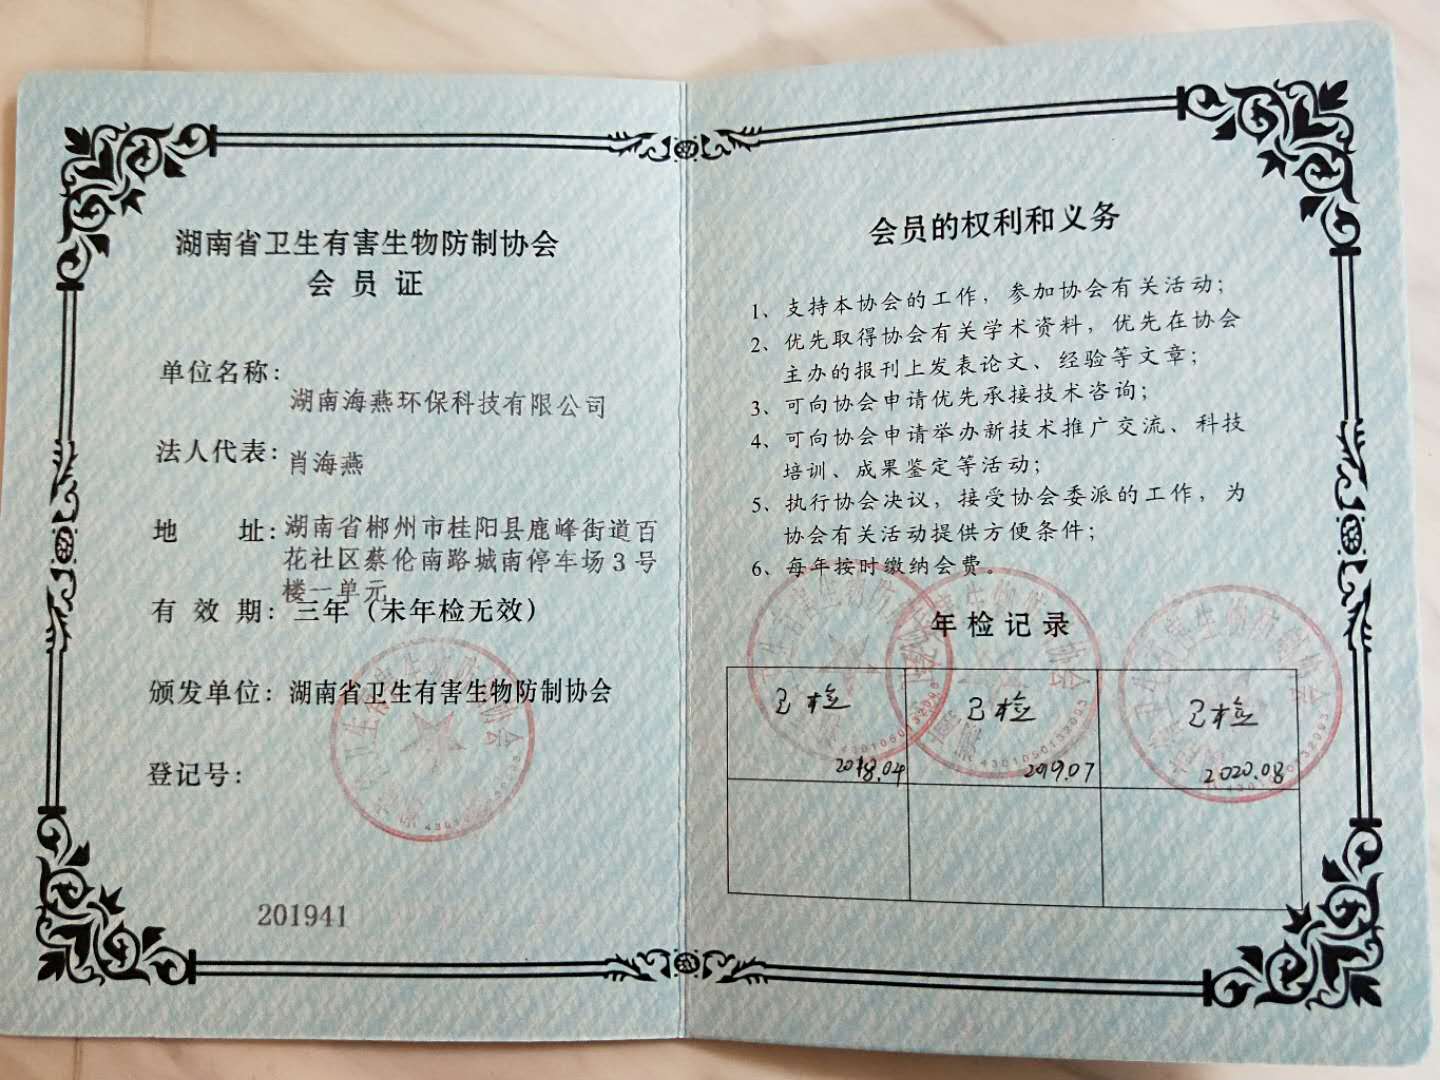 湖南省卫生有害生物防制协会
会员证
单位名称：
湖南海燕环保科技有限公司
法人代表：肖海燕
地 址：湖南省郴州市桂阳县鹿峰街道百
花社区蔡伦南路城南停车场3号
楼一单元
有 效 期：三年（未年检无效）
颁发单位：湖南省卫生有害生物防制协会
登记号：
201941
会员的权利和义务
1、支持本协会的工作，参加协会有关活动；
2、优先取得协会有关学术资料，优先在协会
主办的报刊上发表论文、经验等文章；
3、可向协会申请优先承接技术咨询；
4、可向协会申请举办新技术推广交流、科技
培训、成果鉴定等活动；
5、执行协会决议，接受协会委派的工作，为
协会有关活动提供方便条件；
6、每年按时缴纳会费。
年检记录
已检 已检 已检
2018.04 2019.07 2020.08